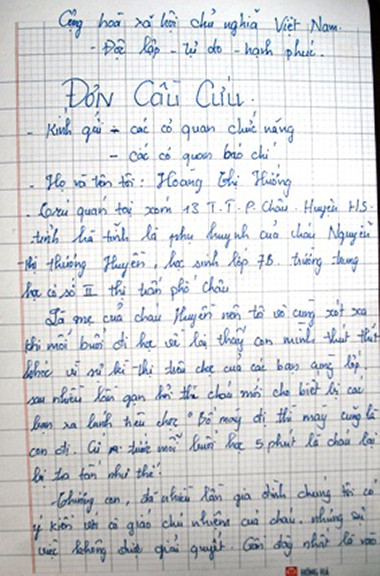 Cộng hoà xã hội chủ nghĩa Việt Nam.
- Độc lập - tự do - hạnh phúc.
ĐƠN CẦU CỨU.
- Kính gửi - các cơ quan chức năng
- các cơ quan báo chí
- Họ và tên tôi: Hoàng Thị Hường
- quán tại xóm 13 T.T.P. Châu. Huyện HS.
tỉnh hà tĩnh là phụ huynh của cháu Nguyễn
Thị Thương Huyền, học sinh lớp 7B. trường trung
học cơ sở II thị trấn phố Châu
Là mẹ của cháu Huyền nên tôi vô cùng xót xa
khi mỗi buổi đi học về lại thấy con mình thút thít
khóc vì sự kì thị trêu chọc của các bạn cùng lớp.
sau nhiều lần gạn hỏi thì cháu mới cho biết bị các
bạn ra hùa trêu chọc "Bố mày đi thì mày cũng là
con đi. Cứ trước mỗi buổi học 5 phút là cháu lại
bị tra tấn như thế!
Thương con, đã nhiều lần gia đình chúng tôi có
ý kiến với cô giáo chủ nhiệm của cháu. nhưng sự
việc không được giải quyết. Gần đây nhất là vào
HỒNG HÀ